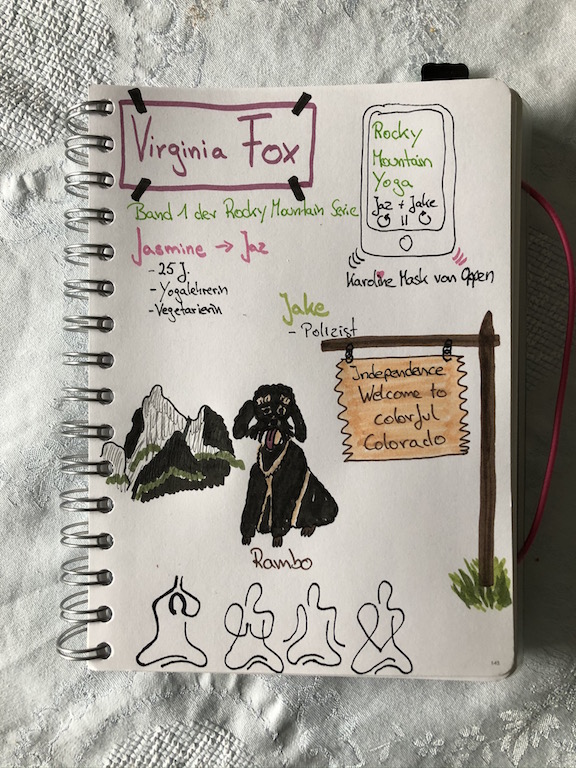 Virginia Fox
Rocky
Mountain
Yoga
Jaz + Jake
Band 1 der Rocky Mountain Serie
Jasmine → Jaz
- 25 J.
- Yogalehrerin
- Vegetarierin
Karoline Mask von Oppen
Jake
- Polizist
Independence
Welcome to
colorful
Colorado
Rambo
145